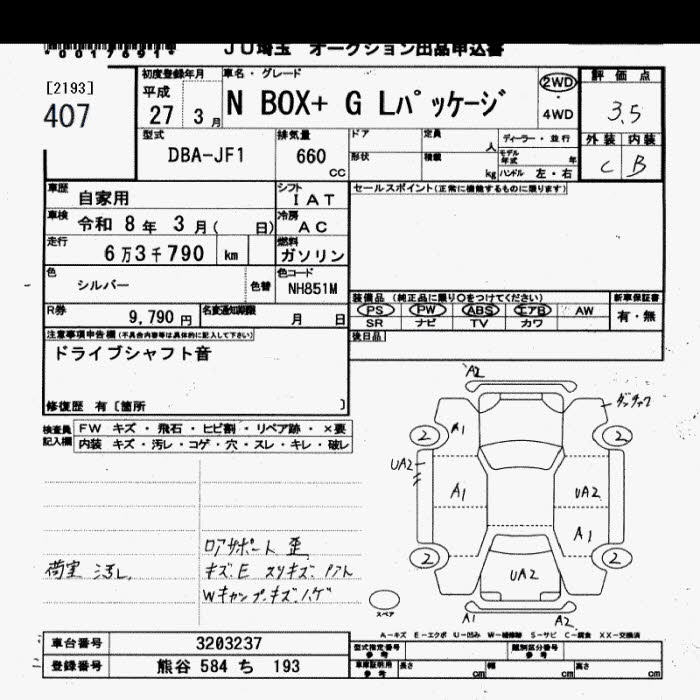 *0017691*
JU埼玉 オークション出品申込書
[2193]
407
初度登録年月
平成
27 3 月
車名・グレード
N BOX+ G Lパッケージ
2WD
・
4WD
評価点
3.5
外装 内装
C B
型式
DBA-JF1
排気量
660
CC
ドア 定員 人
形状 積載 kg
ディーラー・並行
モデル年式 年
ハンドル 左・右
車歴
自家用
シフト
IAT
セールスポイント(正常に機能するものに限ります)
車検
令和 8年 3月( 日)
冷房
AC
走行
6万3千790 km
燃料
ガソリン
色
シルバー
色替
色コード
NH851M
装備品 (純正品に限り〇をつけてください)
新車保証書
PS PW ABS エアB AW
SR ナビ TV カワ
有・無
R券
9,790 円
名変通知期限
月 日
後日品
注意事項申告欄(不具合内容等は具体的に記入して下さい)
ドライブシャフト音
修復歴 有〔箇所 〕
検査員
記入欄
FW キズ・飛石・ヒビ割・リペア跡・×要
内装 キズ・汚レ・コゲ・穴・スレ・キレ・破レ
A2
A1
2 2
UA2
A1 UA2
A1
2 2
UA2
A1 A2
スペア
荷室 汚レ
ロアサポート 歪
Wキャップキズ.ハゲ
A-キズ E-エクボ U-凹み W-補修跡 S-サビ C-腐食 XX-交換済
車台番号 3203237
登録番号 熊谷 584 ち 193
型式指定番号
参考
類別区分番号
参考
車庫証明用
参考
長さ cm 幅 cm 高さ cm